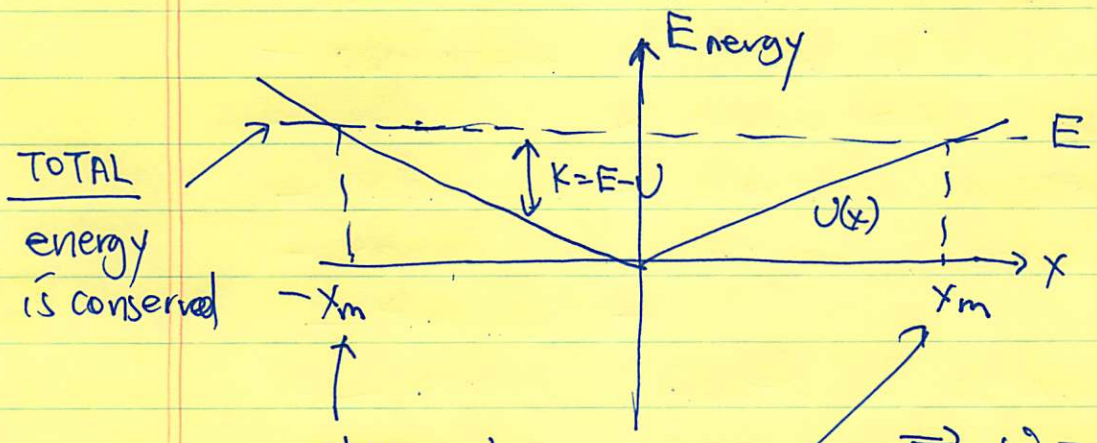 Energy
E
TOTAL
energy
is conserved
K=E-U
U(x)
x
-xm
xm